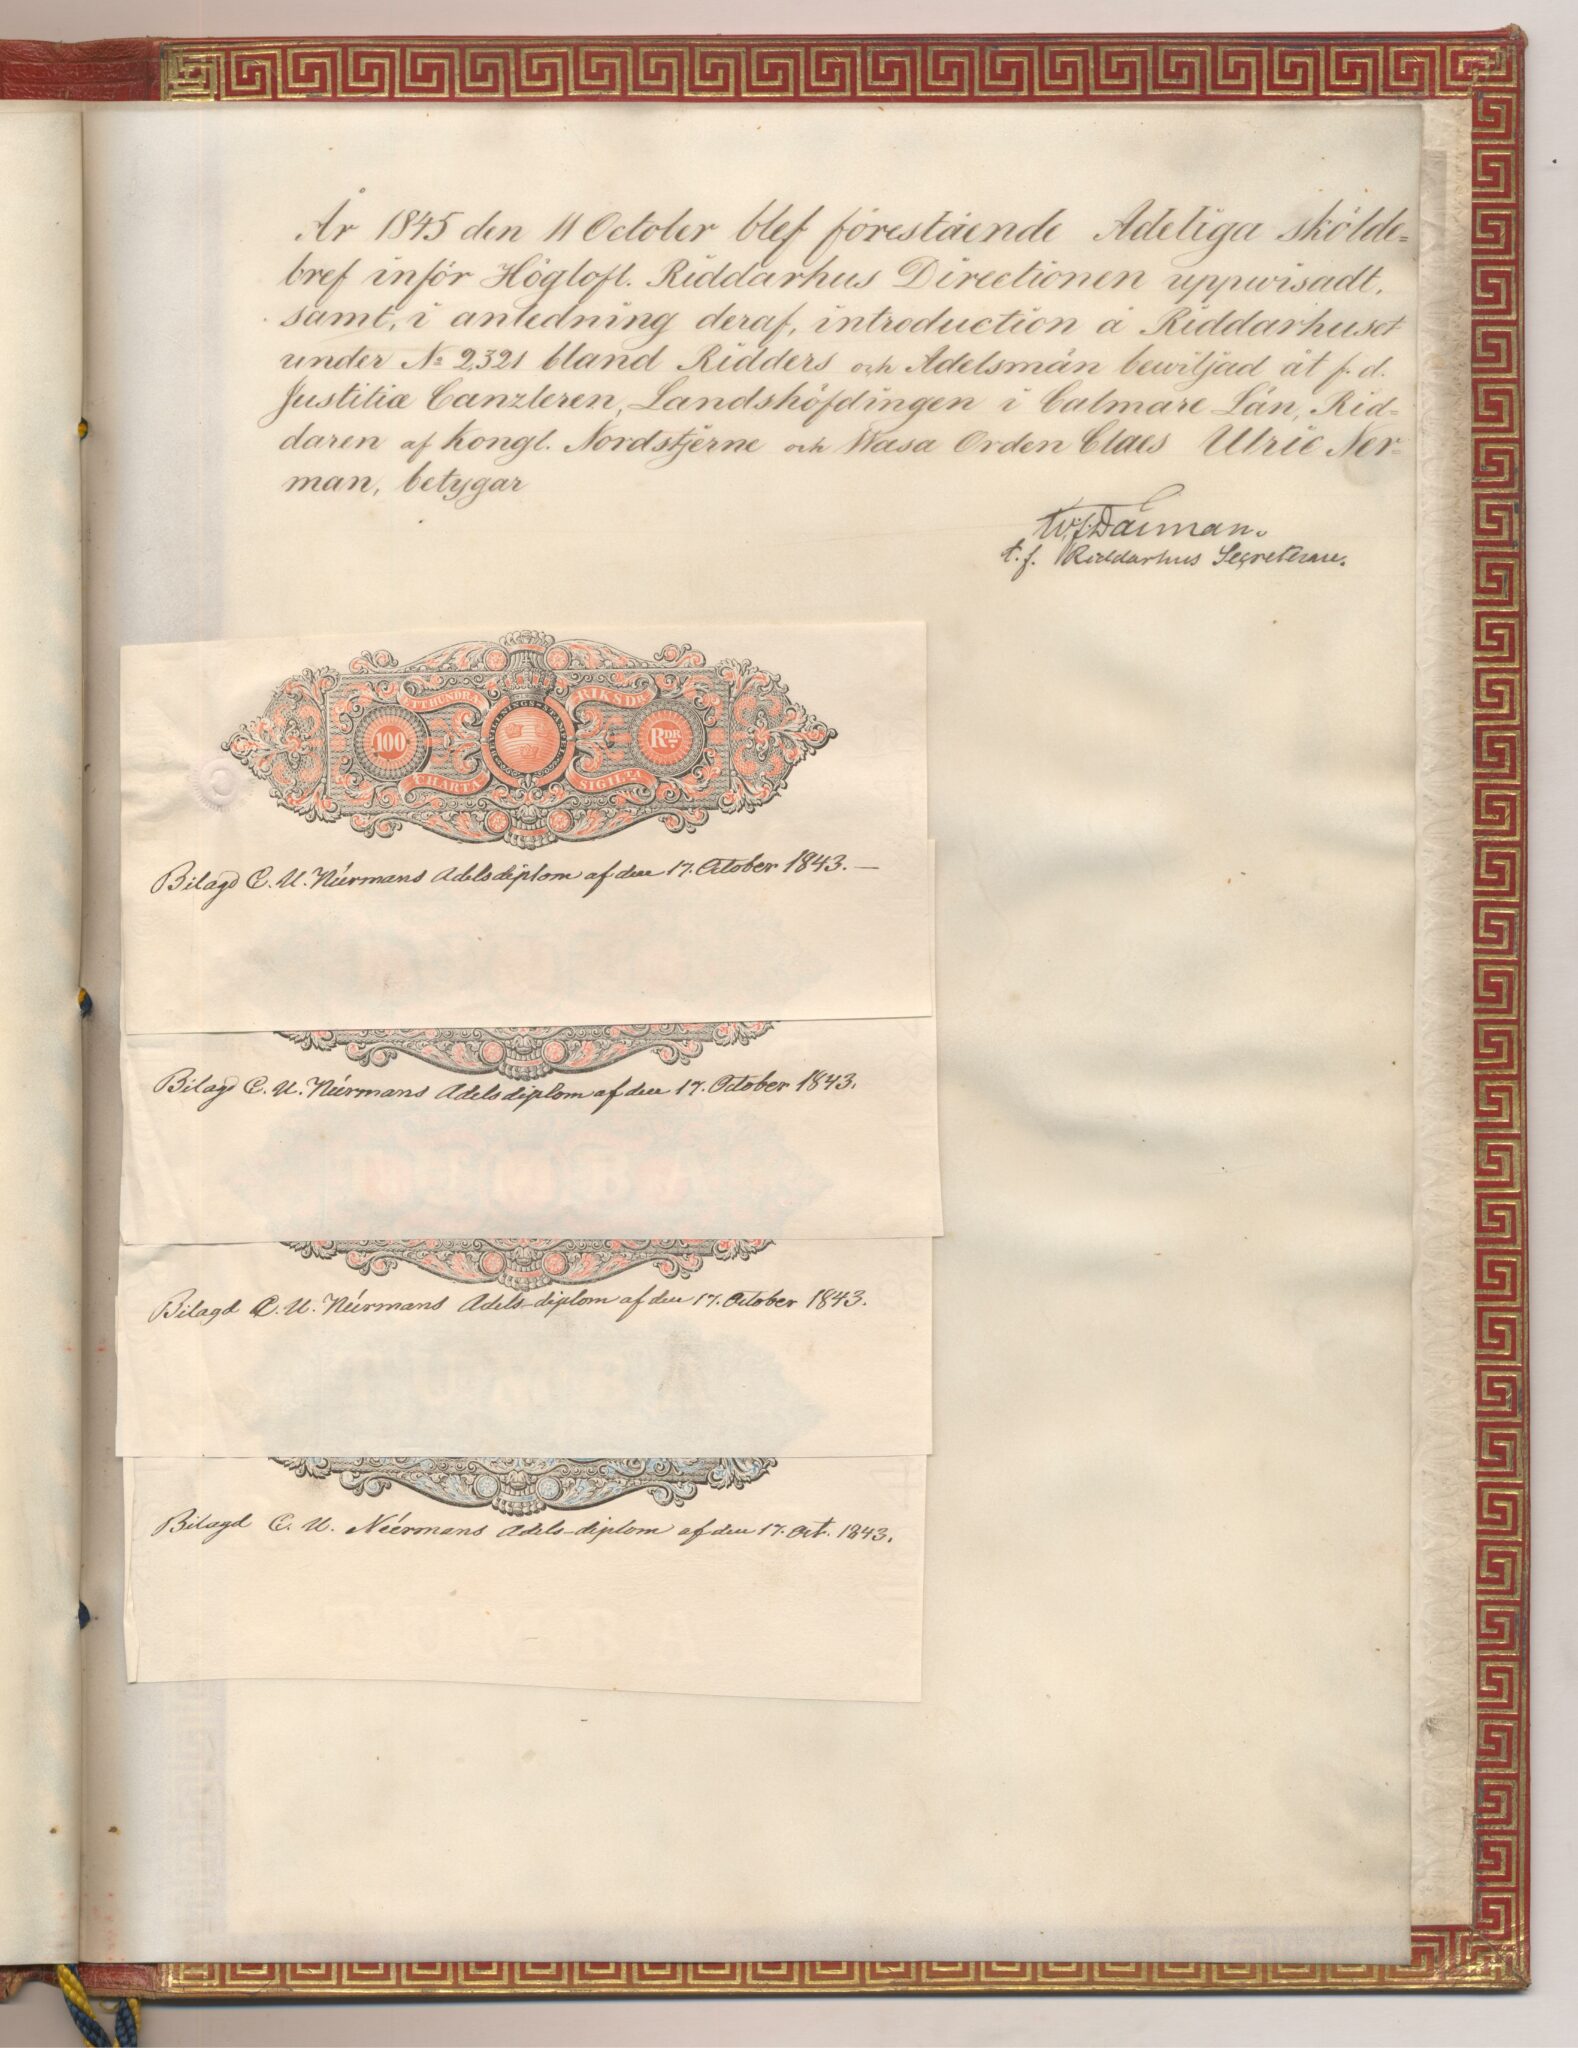 År 1845 den 11 October blef förestående Adeliga sköldе=
bref inför Höglofl. Riddarhus Directionen uppwisadt,
samt, i anledning deraf, introduction å Riddarhuset
under No 2,321 bland Ridders och Adelsmän bewiljad åt f. d.
Justitiæ Canzleren, Landshöfdingen i Calmare Län, Rid=
daren af Kongl. Nordstjerne och Wasa Orden Claes Ulric Ner=
man, betygar
t. f. Riddarhus Secreterare.
ETTHUNDRA RIKSDR
100 RDR
CHARTA SIGILTA
Bilagd C. U. Néermans Adelsdiplom af den 17. October 1843.—
Bilagd C. U. Néermans Adelsdiplom af den 17. October 1843.
Bilagd C. U. Néermans Adels-diplom af den 17. October 1843.
Bilagd C. U. Neérmans Adels-diplom af den 17. Oct. 1843.